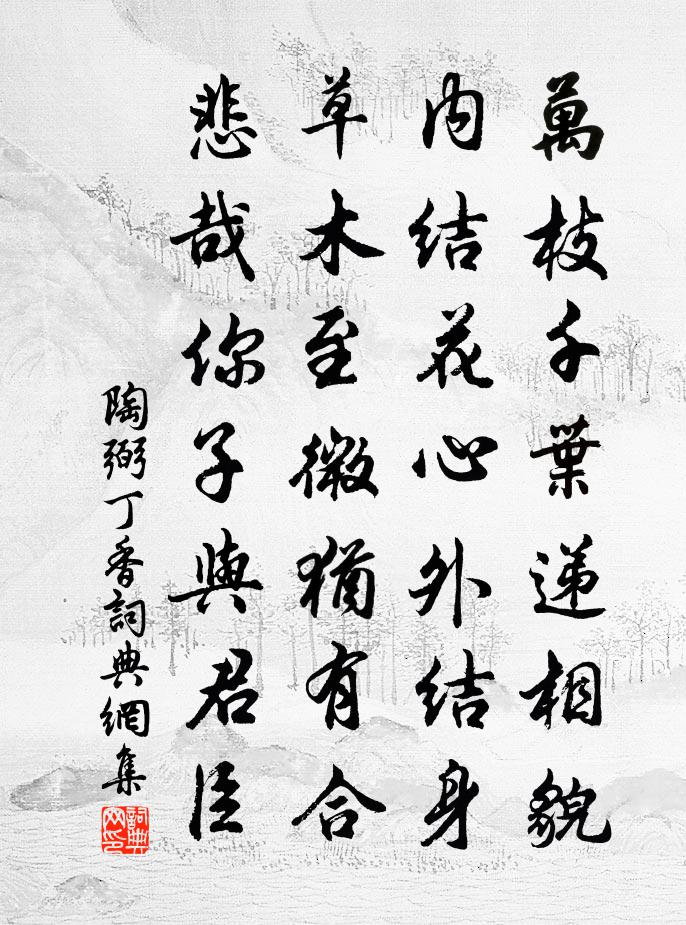 萬枝千葉遞相貌
內結花心外結身
草木至微猶有合
悲哉你子與君臣
陶弼丁香詞典網集
詞典網印